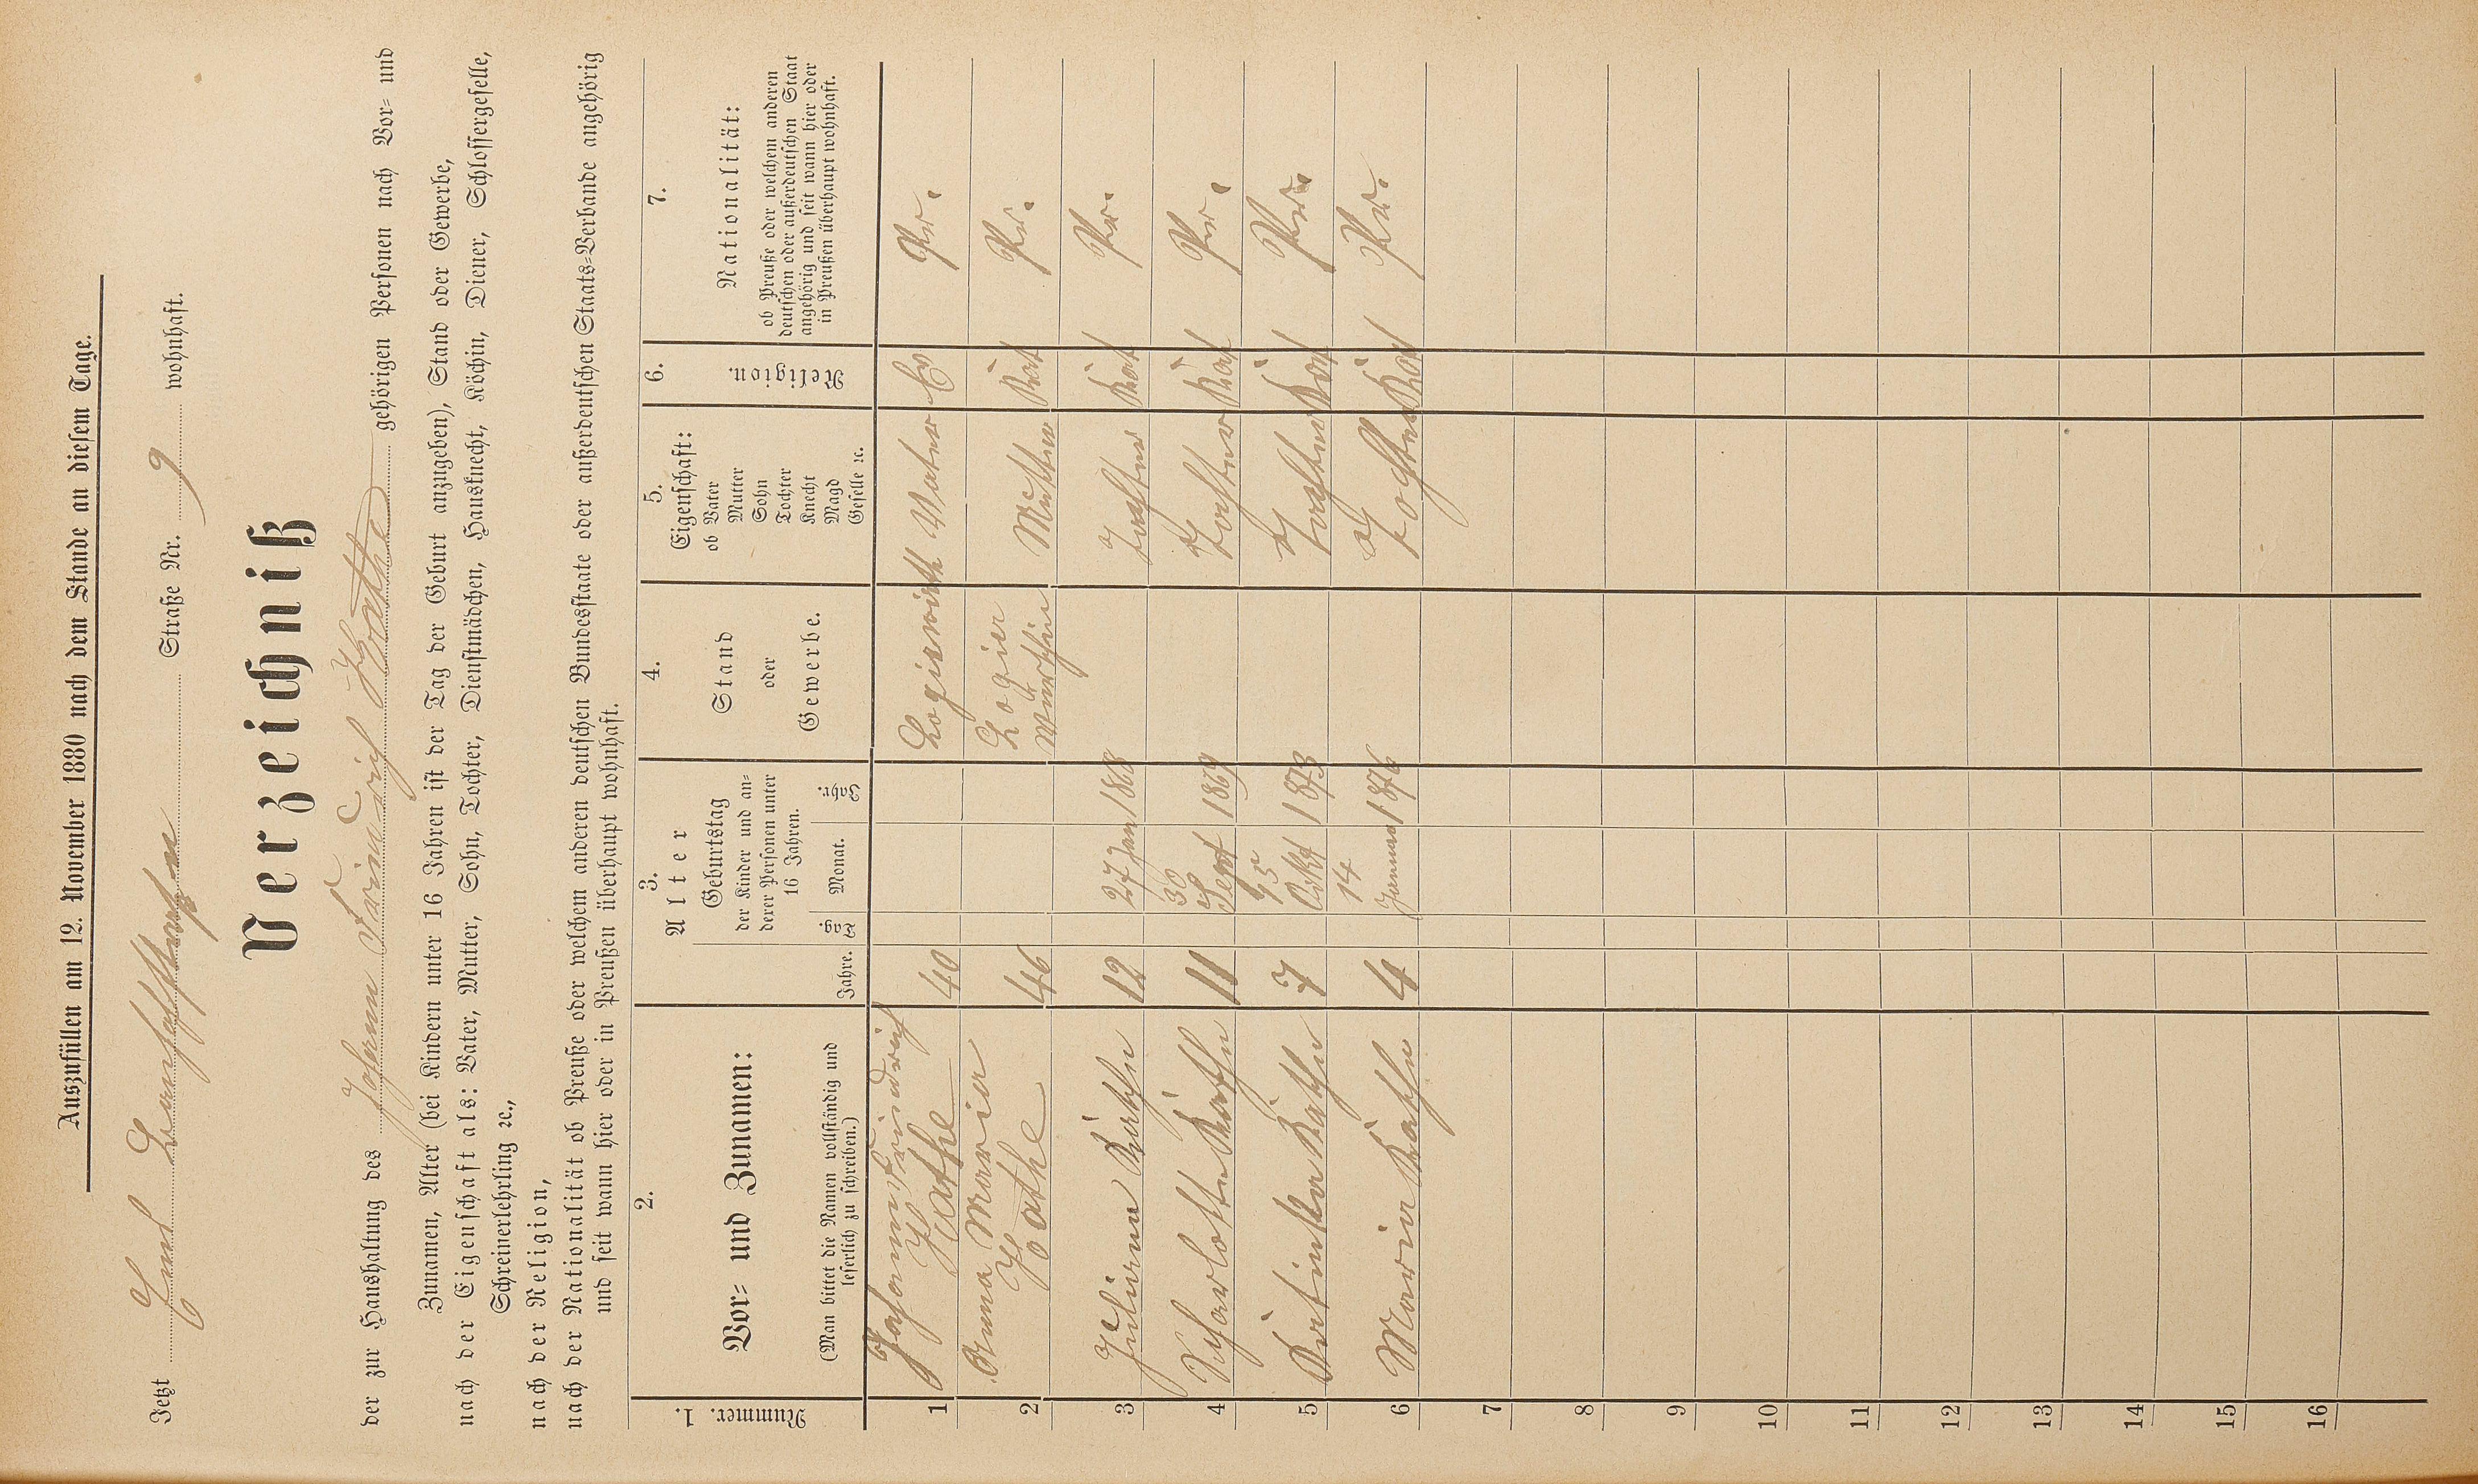 Auszufüllen am 12. November 1880 nach dem Stande an diesem Tage.
Jetzt Straße Nr. 9 wohnhaft.
Verzeichniß
der zur Haushaltung des Johann Heinrich Kathe gehörigen Personen nach Vor- und
Zunamen, Alter (bei Kindern unter 16 Jahren ist der Tag der Geburt anzugeben), Stand oder Gewerbe,
nach der Eigenschaft als: Vater, Mutter, Sohn, Tochter, Dienstmädchen, Hausknecht, Köchin, Diener, Schlossergeselle,
Schreinerlehrling ꝛc.,
nach der Religion,
nach der Nationalität ob Preuße oder welchem anderen deutschen Bundesstaate oder außerdeutschen Staats-Verbande angehörig
und seit wann hier oder in Preußen überhaupt wohnhaft.
1.
Nummer.
2.
Vor- und Zunamen:
(Man bittet die Namen vollständig und
leserlich zu schreiben.)
3.
Alter
Jahre.
Geburtstag
der Kinder und an-
derer Personen unter
16 Jahren.
Tag. Monat. Jahr.
4.
Stand
oder
Gewerbe.
5.
Eigenschaft:
ob Vater
Mutter
Sohn
Tochter
Knecht
Magd
Geselle ꝛc.
6.
Religion.
7.
Nationalität:
ob Preuße oder welchem anderen
deutschen oder außerdeutschen Staat
angehörig und seit wann hier oder
in Preußen überhaupt wohnhaft.
1 Johann Heinrich Kathe 40 Logiewirth Vater Ev Pr.
2 Anna Maria Kathe 46 Logier Wirthin Mutter Kat Pr.
3 Juliana Käthe 12 27 Jan 1868 Tochter Kat Pr.
4 Scharlotte Käthe 11 30 Sept 1869 Tochter Kat Pr.
5 Käthe 7 Ockt 1873 Tochter Kat Pr.
6 Maria Käthe 4 14 Januar 1876 Tochter Kat Pr.
7
8
9
10
11
12
13
14
15
16